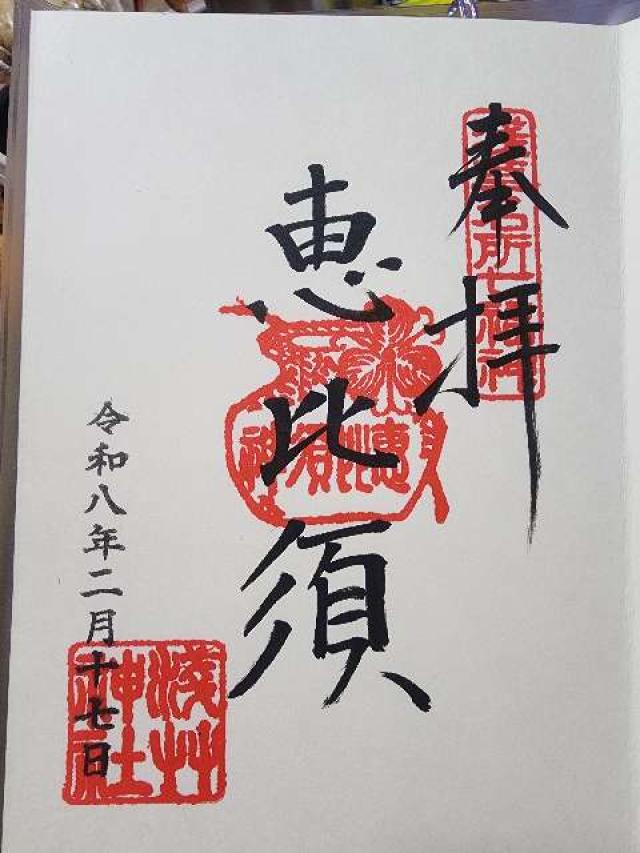 奉拝
浅草名所七福神
恵比須
恵比須神
令和八年二月十七日
浅草神社